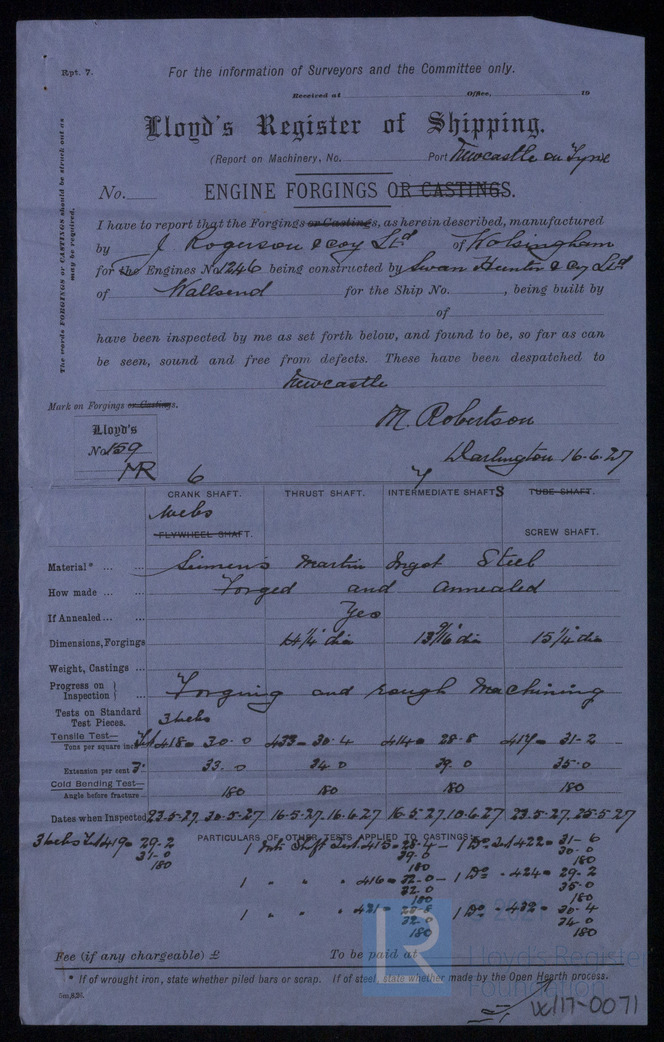 Rpt. 7.
For the information of Surveyors and the Committee only.
Received at Office, 19
Lloyd's Register of Shipping.
(Report on Machinery, No. Port Newcastle on Tyne
No. ENGINE FORGINGS OR CASTINGS.
I have to report that the Forgings or Castings, as herein described, manufactured
by J Rogerson & Coy Ltd of Wolsingham
for the Engines No 1246 being constructed by Swan Hunter & Coy Ltd
of Wallsend for the Ship No. , being built by
of
have been inspected by me as set forth below, and found to be, so far as can
be seen, sound and free from defects. These have been despatched to
Newcastle
The words FORGINGS or CASTINGS should be struck out as
may be required.
Mark on Forgings or Castings.
M. Robertson
Lloyd's
No 159
MR
Darlington 16-6-27
6 4
CRANK SHAFT. THRUST SHAFT. INTERMEDIATE SHAFTS TUBE SHAFT.
Webs
FLYWHEEL SHAFT. SCREW SHAFT.
Material* ... ... Siemens Martin Ingot Steel
How made ... ... Forged and annealed
If Annealed ... ... Yes
Dimensions, Forgings 14 1/4 dia 13 9/16 dia 15 1/4 dia
Weight, Castings ...
Progress on Inspection } Forging and rough Machining
Tests on Standard
Test Pieces. 3 webs
Tensile Test—
Tons per square inch Tst 418 = 30.0 433 = 30.4 414 = 28.8 417 = 31-2
Extension per cent 3" 33.0 34.0 39.0 35.0
Cold Bending Test—
Angle before fracture ... 180 180 180 180
Dates when Inspected 23.5-27, 30.5-27 16-5-27, 16.6.27 16.5.27, 10.6.27 23.5.27, 25.5-27
PARTICULARS OF OTHER TESTS APPLIED TO CASTINGS:
3 Webs Tst 419 = 29-2 1 Shaft Tst 415 = 28-4 — 1 Do Tst 422 = 31-6
31-0 39.0 30-0
180 180 180
1 " " " 416 = 32-0 — 1 Do " 424 = 29.2
32.0 35-0
180 180
1 " " " 421 = 28-8 1 Do " 432 = 30-4
32-0 34-0
180 180
Fee (if any chargeable) £ To be paid at
* If of wrought iron, state whether piled bars or scrap. If of steel, state whether made by the Open Hearth process.
5m,8,26.
LR
Lloyd's Register
Foundation
W17-0071